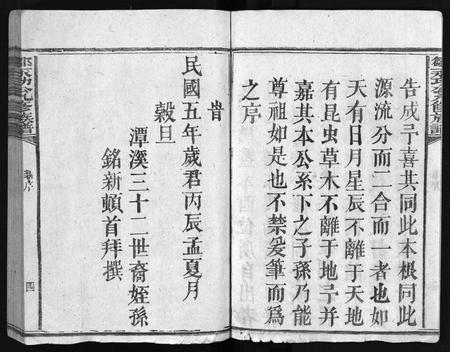 告成予喜其同此本根同此
源流分而二合而一者也如
天有日月星辰不離于天地
有昆虫草木不離于地予并
嘉其本公系下之子孫乃能
尊祖如是也不禁爰筆而為
之序
旹
民國五年歲君丙辰孟夏月
穀旦
潭溪三十二世裔姪孫
銘新頓首拜撰
四